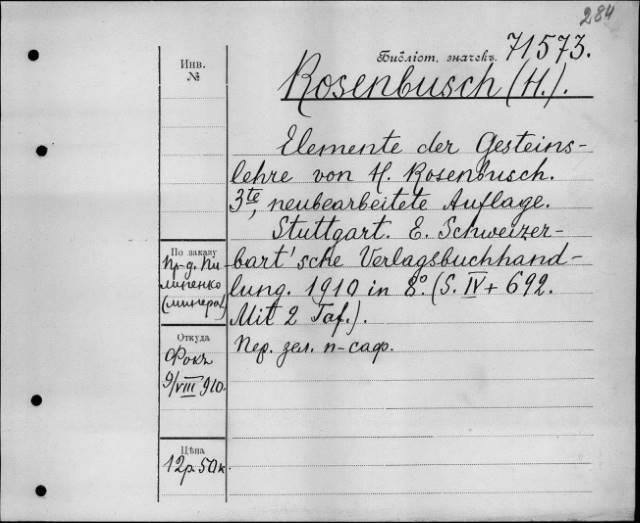 284
Библіот. значекъ 71573.
Инв.
№
Rosenbusch (H.).
Elemente der Gesteins-
lehre von H. Rosenbusch.
3te, neubearbeitete Auflage.
Stuttgart. E. Schweizer-
bart'sche Verlagsbuchhand-
lung. 1910 in 8º. (S. IV + 692.
Mit 2 Taf.).
Пер. зел. п-саф.
По заказу
Пр-д. Пи
липенко
(минерал)
Откуда
Фокъ
9/VIII 910.
Цѣна
12р. 50к.